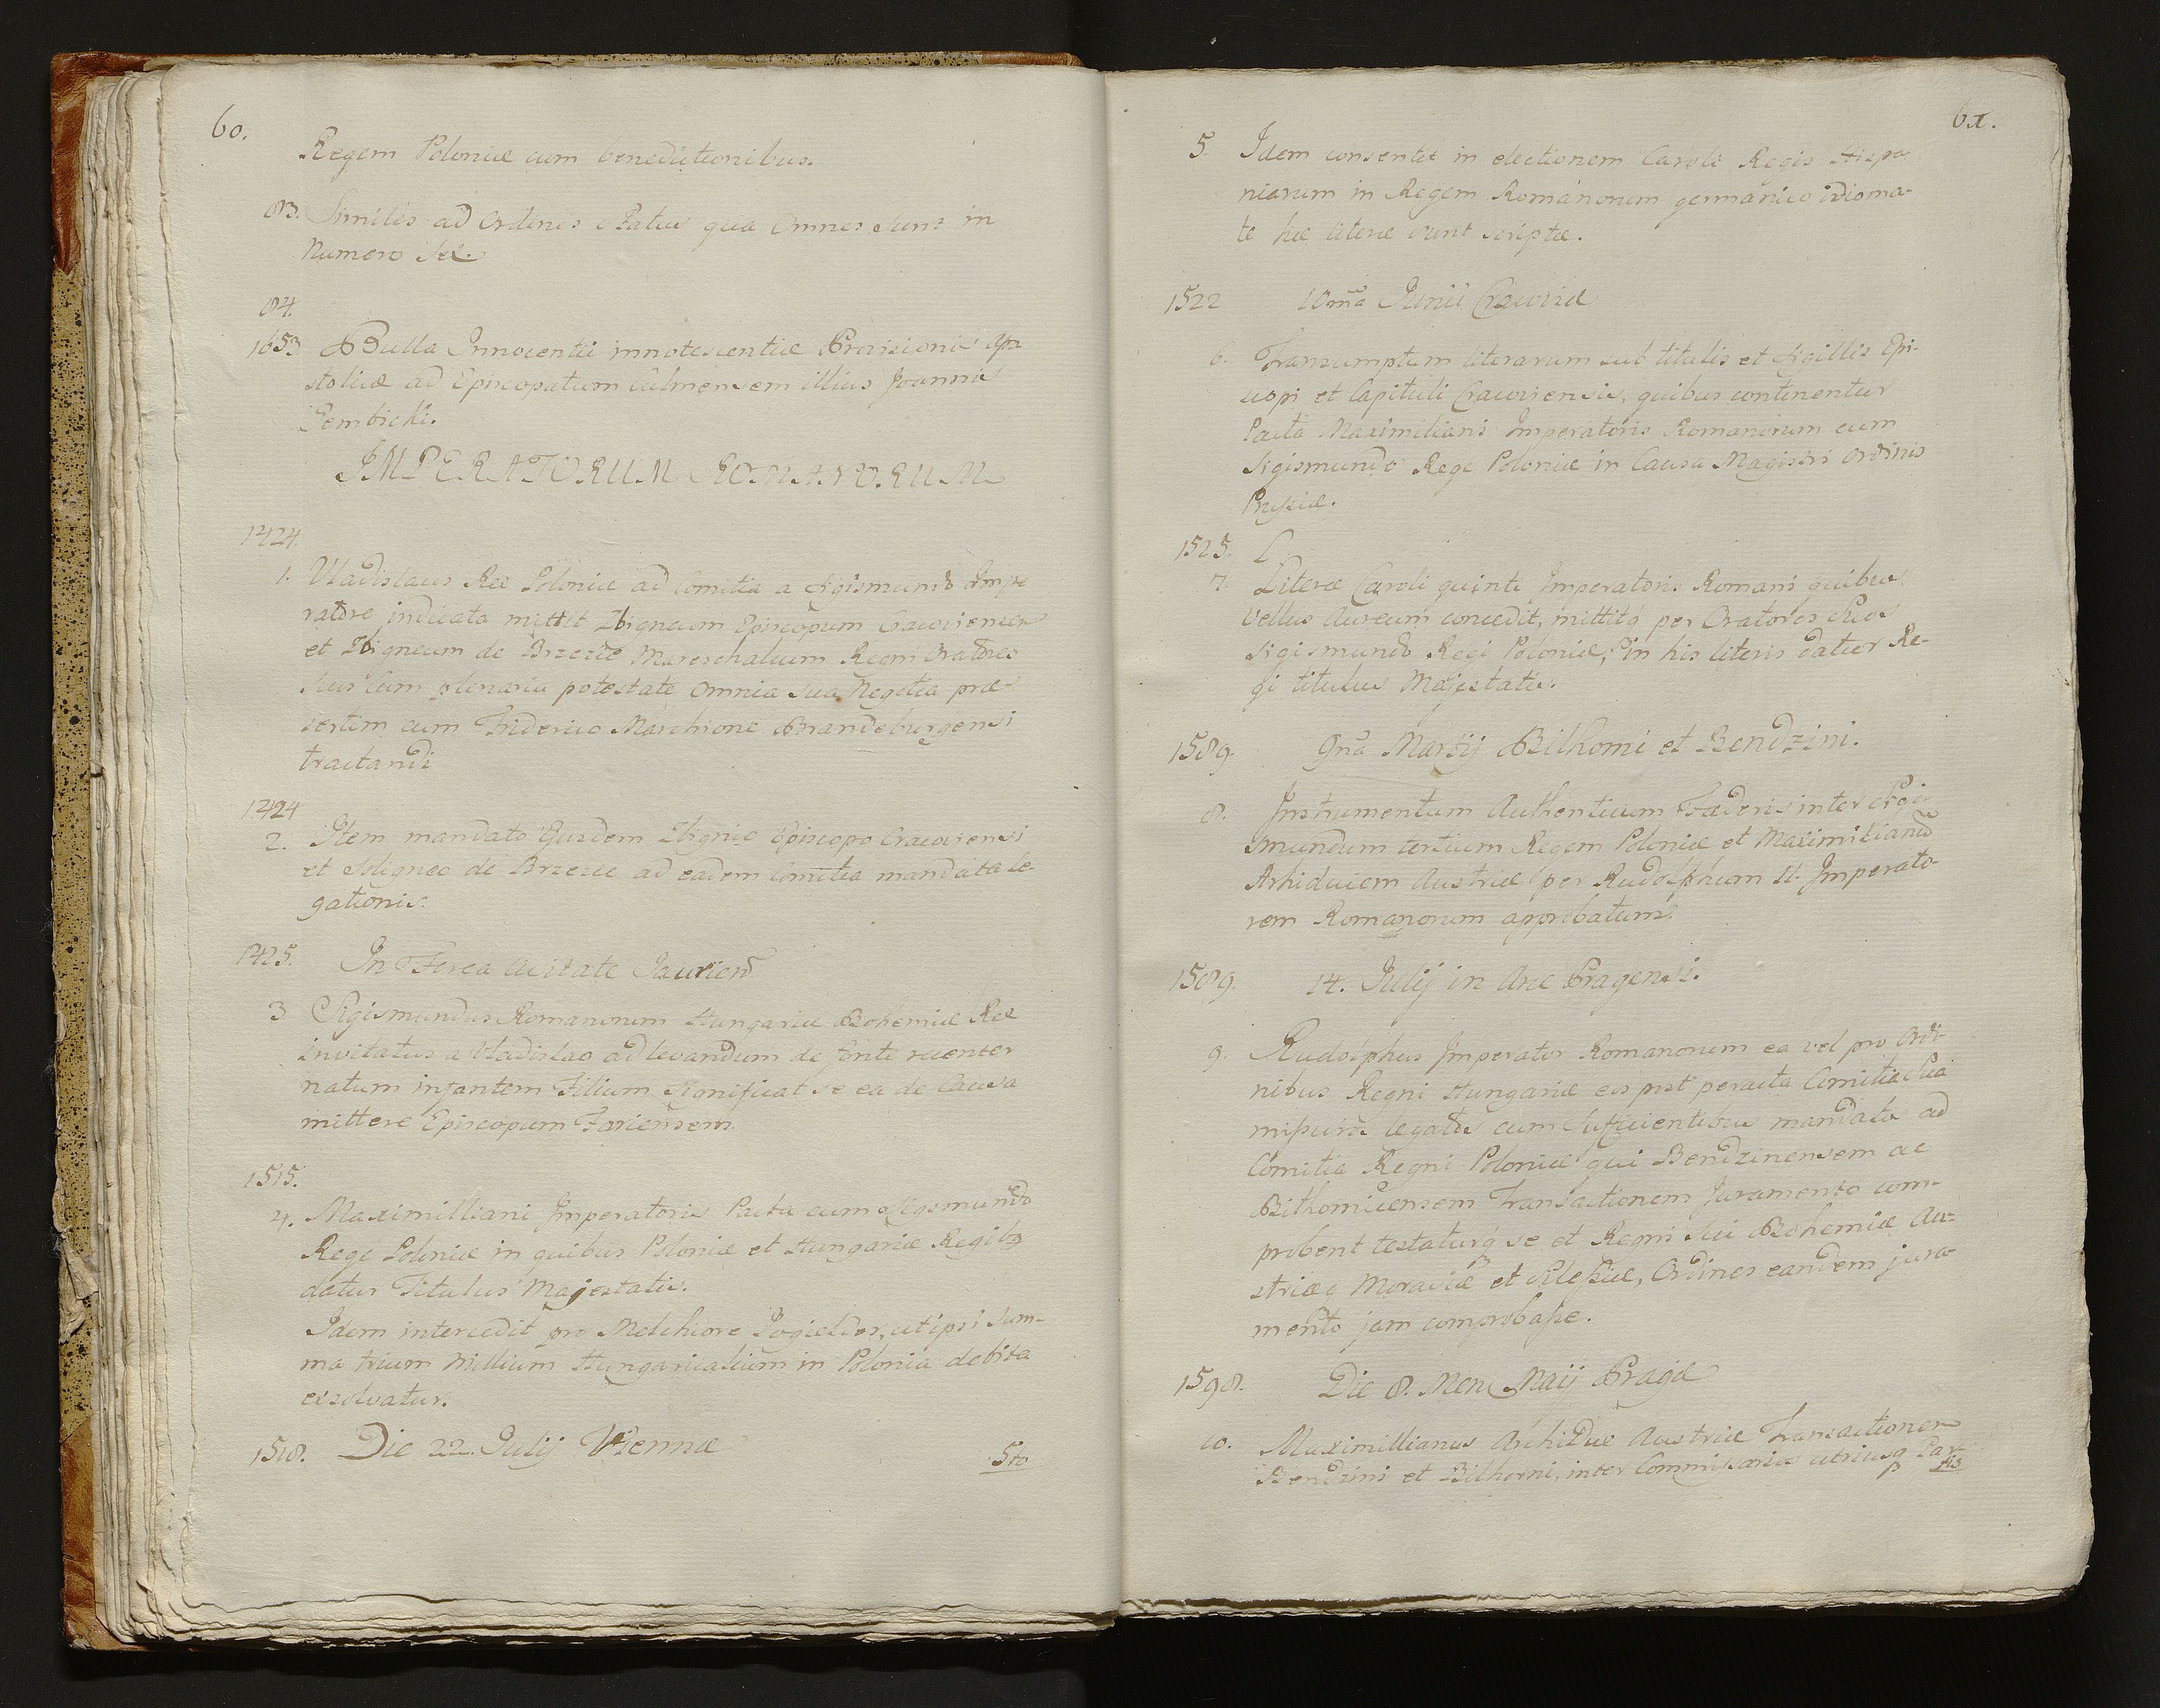 60.
Regem Poloniæ cum benedictionibus.
83. Similis ad Ordines Status quæ Omnes sunt in
Numero sex.
84.
1653 Bulla Innocentii innotescentiæ Provisionis Apo
stolicæ ad Episcopatum Culmensem illius Joannis
Gembicki.
IMPERATORUM ROMANORUM
1424.
1. Vladislaus Rex Poloniæ ad Comitia a Sigismundo Impe
ratore indicata mittit Zbigneum Episcopum Cracoviensem
et Zbigneum de Brzezie Mareschalcum Regni Oratores
suos Cum plenaria potestate Omnia sua Negotia præ-
sertim cum Friderico Marchione Brandeburgensi
tractandi
1424
2. Item mandato Ejusdem Zbigniæ Episcopo Cracoviensi
et Sbigneo de Brzezie ad eadem Comitia mandata le
gationis.
1425. In Ferea civitate Jaurien̄
3 Sigismundus Romanorum Hungariæ Bohemiæ Rex
invitatus a Vladislao ad levandum de fonte recenter
natum infantem Filium significat se ea de Causa
mittere Episcopum Jauriensem
1515.
4. Maximilliani Imperatoris Pacta cum Sigismundo
Rege Poloniæ in quibus Poloniæ et Hungariæ Regibq
datur Titulus Majestatis.
Idem intercedit pro Melchiore Pogielder, ut ipsi Sum-
ma trium Millium Hungaricalium in Polonia debita
exsolvatur.
1518. Die 22. Julij Viennæ
5to
61.
5. Idem consentit in electionem Caroli Regis Hispa
niarum in Regem Romanorum germanico idioma-
te hæ literæ sunt scriptæ.
1522 10mã Junii Cracoviæ
6. Transumptum literarum sub titulis et sigillis Epi-
scopi et Capituli Cracoviensis, quibus continentur
Pacta Maximiliani Imperatoris Romanorum cum
Sigismundo Rege Poloniæ in Causa Magistri Ordinis
Prussiæ.
1525. L
7. Literæ Caroli quinti Imperatoris Romani quibus
Vellus Aureum concedit, mittitq per Oratores suos
Sigismundo Regi Poloniæ, in his literis datur Re-
gi titulus Majestatis.
1589. 9nã Martij Bithomi et Bendzini.
8. Instrumentum Authenticum Fæderis inter Sigi-
smundum tertium Regem Poloniæ et Maximilianū
Arhiducem Austriæ per Rudolphum II. Imperato-
rem Romanorum approbatum.
1589. 14. Julij in Arce Pragensi.
9. Rudolphus Imperator Romanorum ea vel pro Ordi-
nibus Regni Hungariæ eos post peracta Comitia sua
missuros legatos cum sufficientibus mandatis ad
Comitia Regni Poloniæ qui Bendzinensem ac
Bithomiensem Transactionem Juramento com-
probent testaturq se et Regni sui Bohemiæ Au-
striæq Moraviæ et Silesiæ, Ordines eandem jura-
mento jam comprobasse.
1598. Die 8. Men Maij Pragæ
10. Maximillianus Archidux Austriæ Transactionem
Bendzini et Bithomi, inter Commissarios utriusq Par-
tis